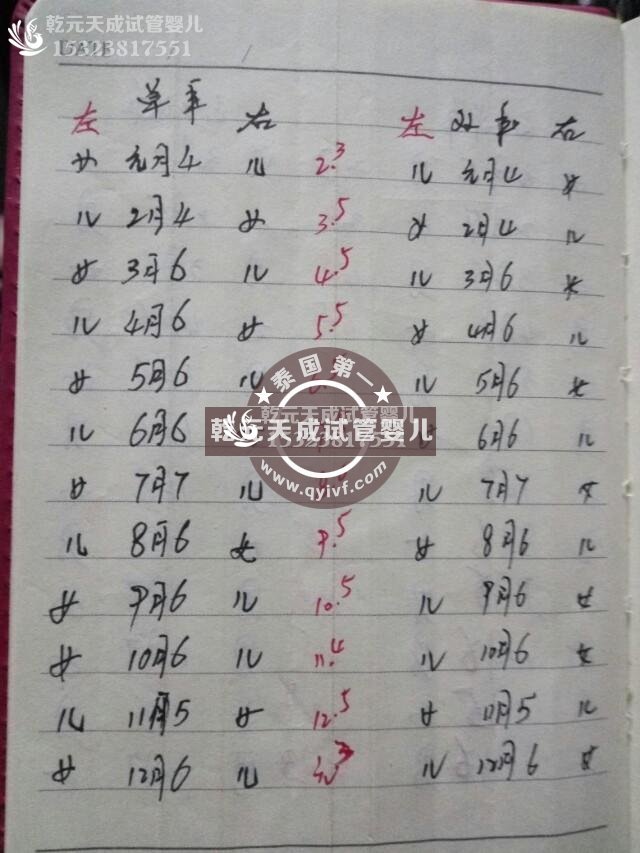 乾元天成试管婴儿
15323817551
左 单年 右 左 双年 右
女 元月4 儿 2.3 儿 元月4 女
儿 2月4 女 3.5 女 2月4 儿
女 3月6 儿 4.5 儿 3月6 女
儿 4月6 女 5.5 女 4月6 儿
女 5月6 儿 儿 5月6 女
泰国第一
乾元天成试管婴儿
15323817551
儿 6月6 女 6月6 儿
www.qyivf.com
女 7月7 儿 儿 7月7 女
儿 8月6 女 9.5 女 8月6 儿
女 9月6 儿 10.5 儿 9月6 女
女 10月6 儿 11.4 儿 10月6 女
儿 11月5 女 12.5 女 11月5 儿
女 12月6 儿 儿 12月6 女